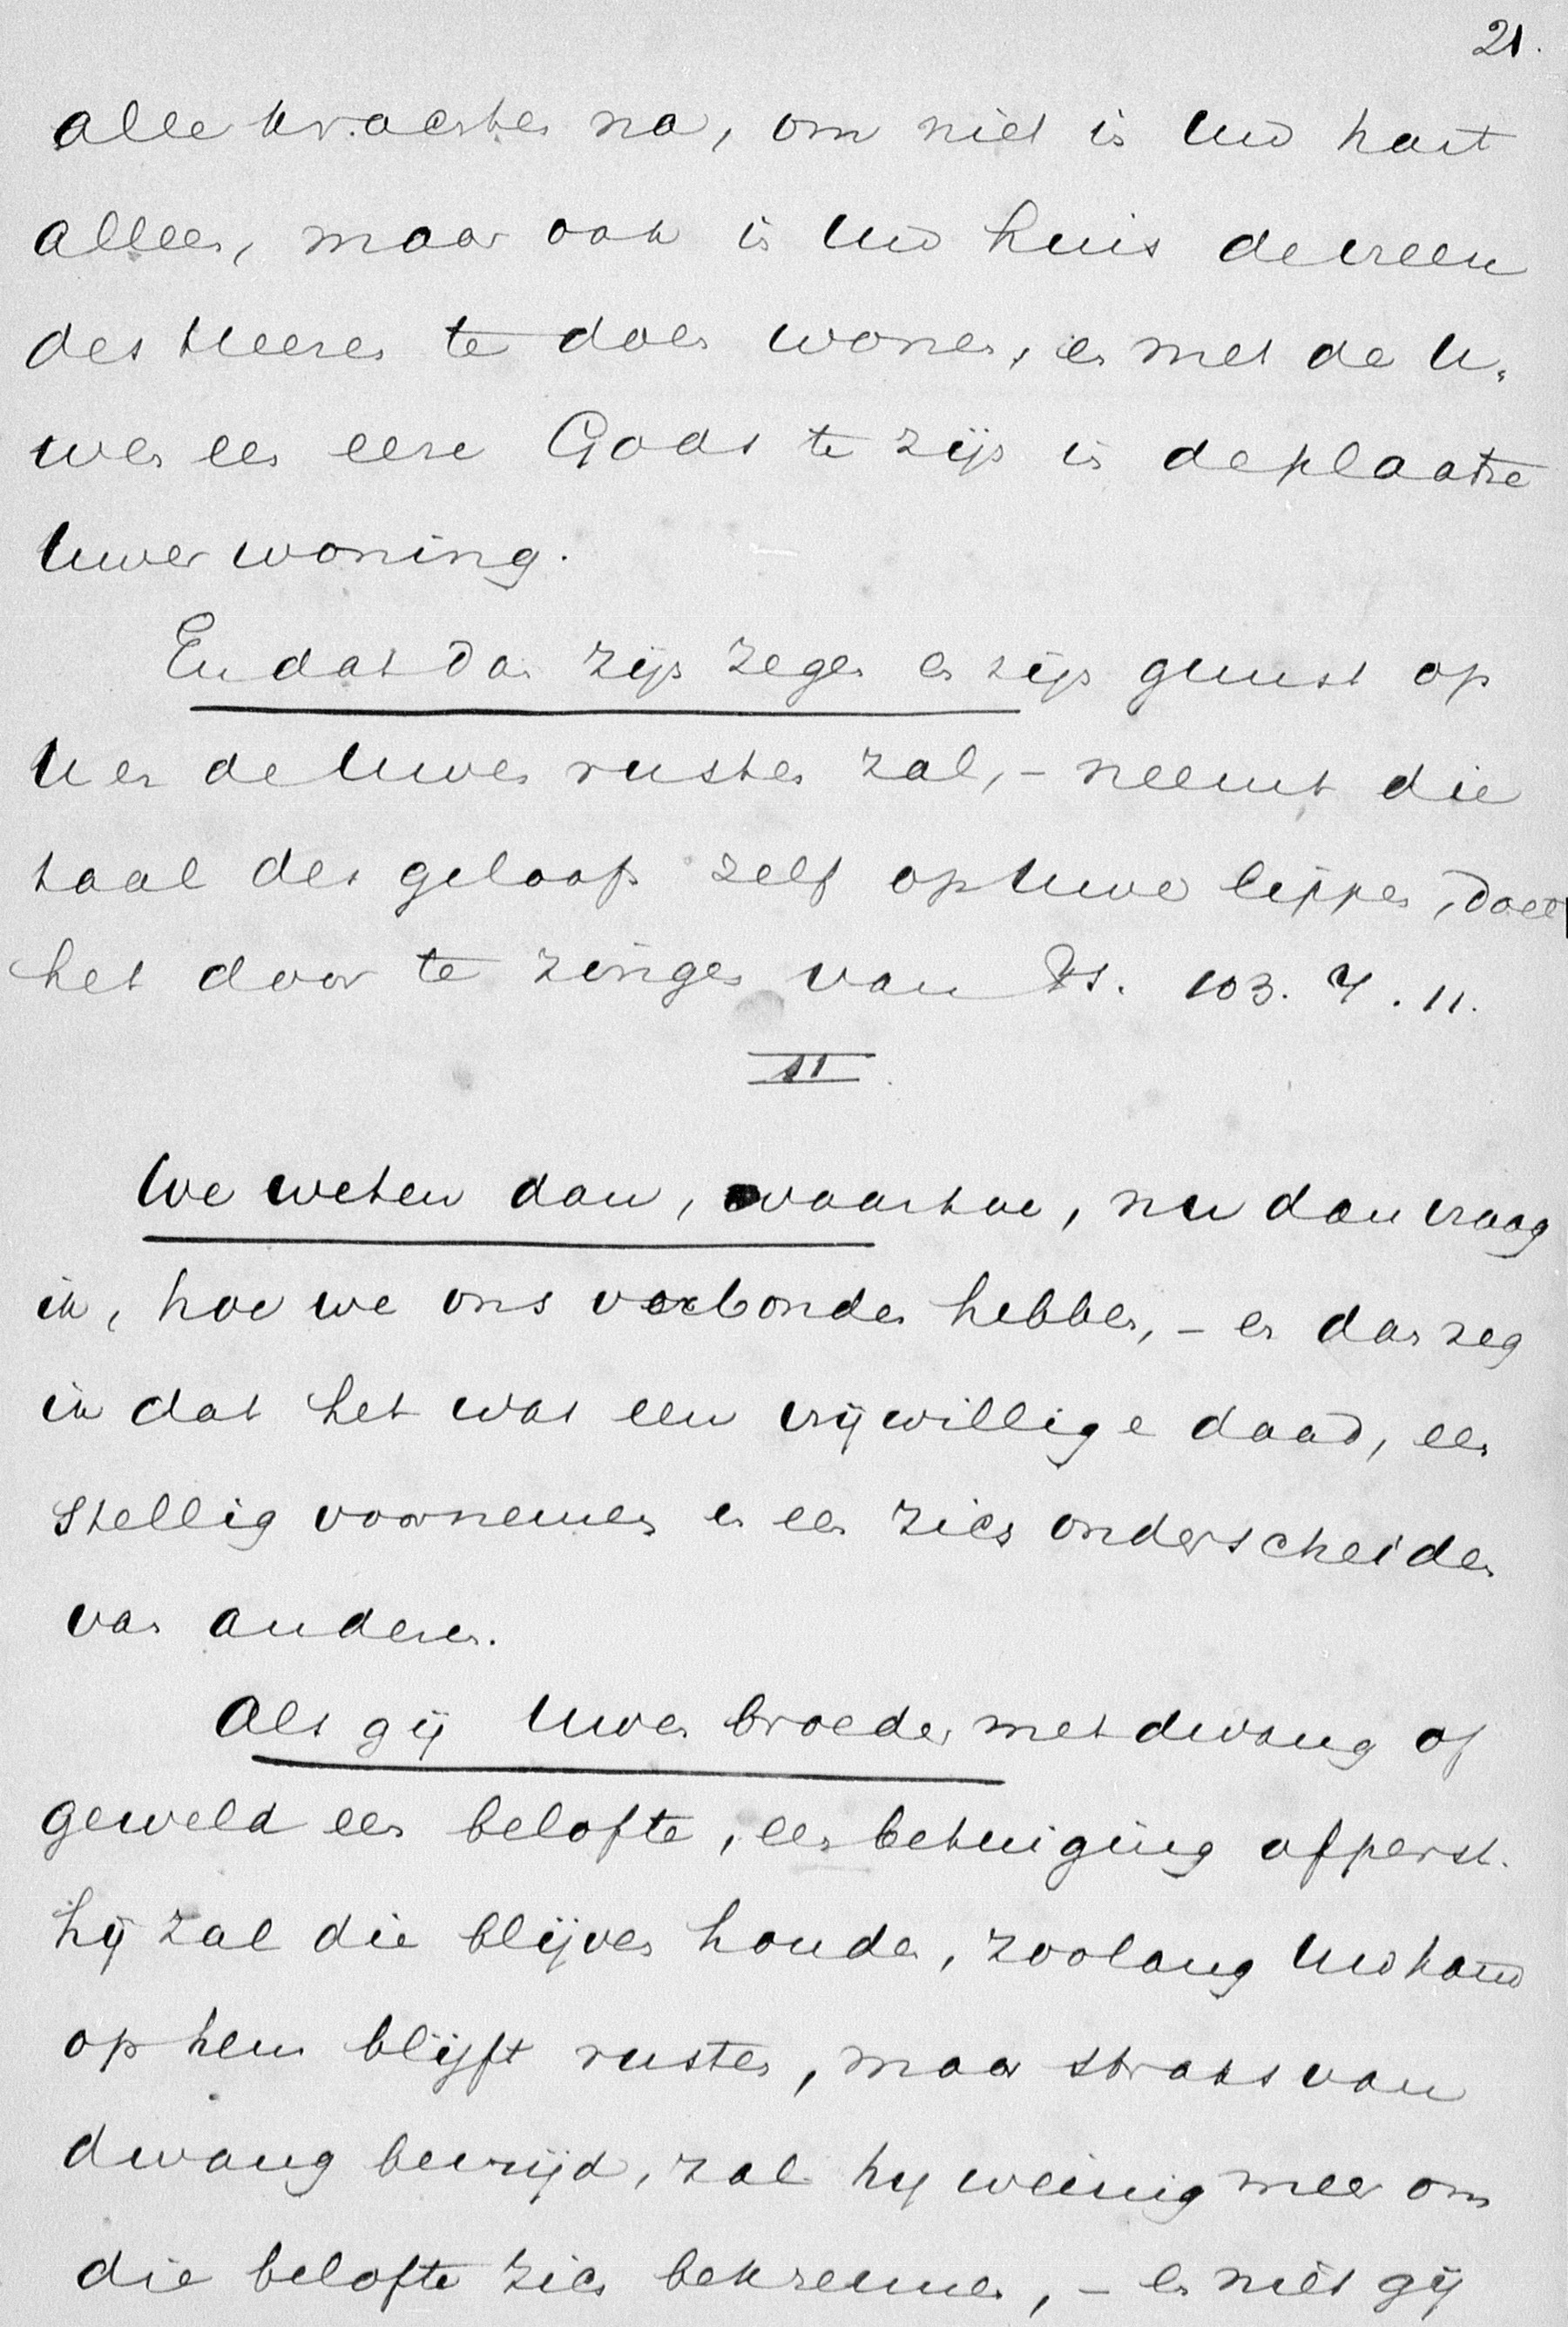 21.
alle krachten na, om niet in Uw hart
alleen, maar ook in Uw huis de vreeze
des Heeren te doen wonen, en met de U,
wen een eere Gods te zijn in de plaatse
Uwer woning.
En dat dan zijn zegen en zijn gunst op
U en de Uwen rusten zal, - neemt die
taal des geloofs zelf op Uwe lippen, doet
het door te zingen van Ps. 103. 7. 11.
II.
We weten dan, waartoe, nu dan vraag
ik, hoe we ons verbonden hebben, - en dan zeg
ik dat het was een vrijwillige daad, een
stellig voornemen en een zich onderscheiden
van anderen.
Als gij Uwen broeder met dwang of
geweld een belofte, een betuiging afperst.
hij zal die blijven houden, zoolang Uw hand
op hem blijft rusten, maar straks van
dwang bevrijd, zal hij weinig meer om
die belofte zich bekreunen, - en niet gij